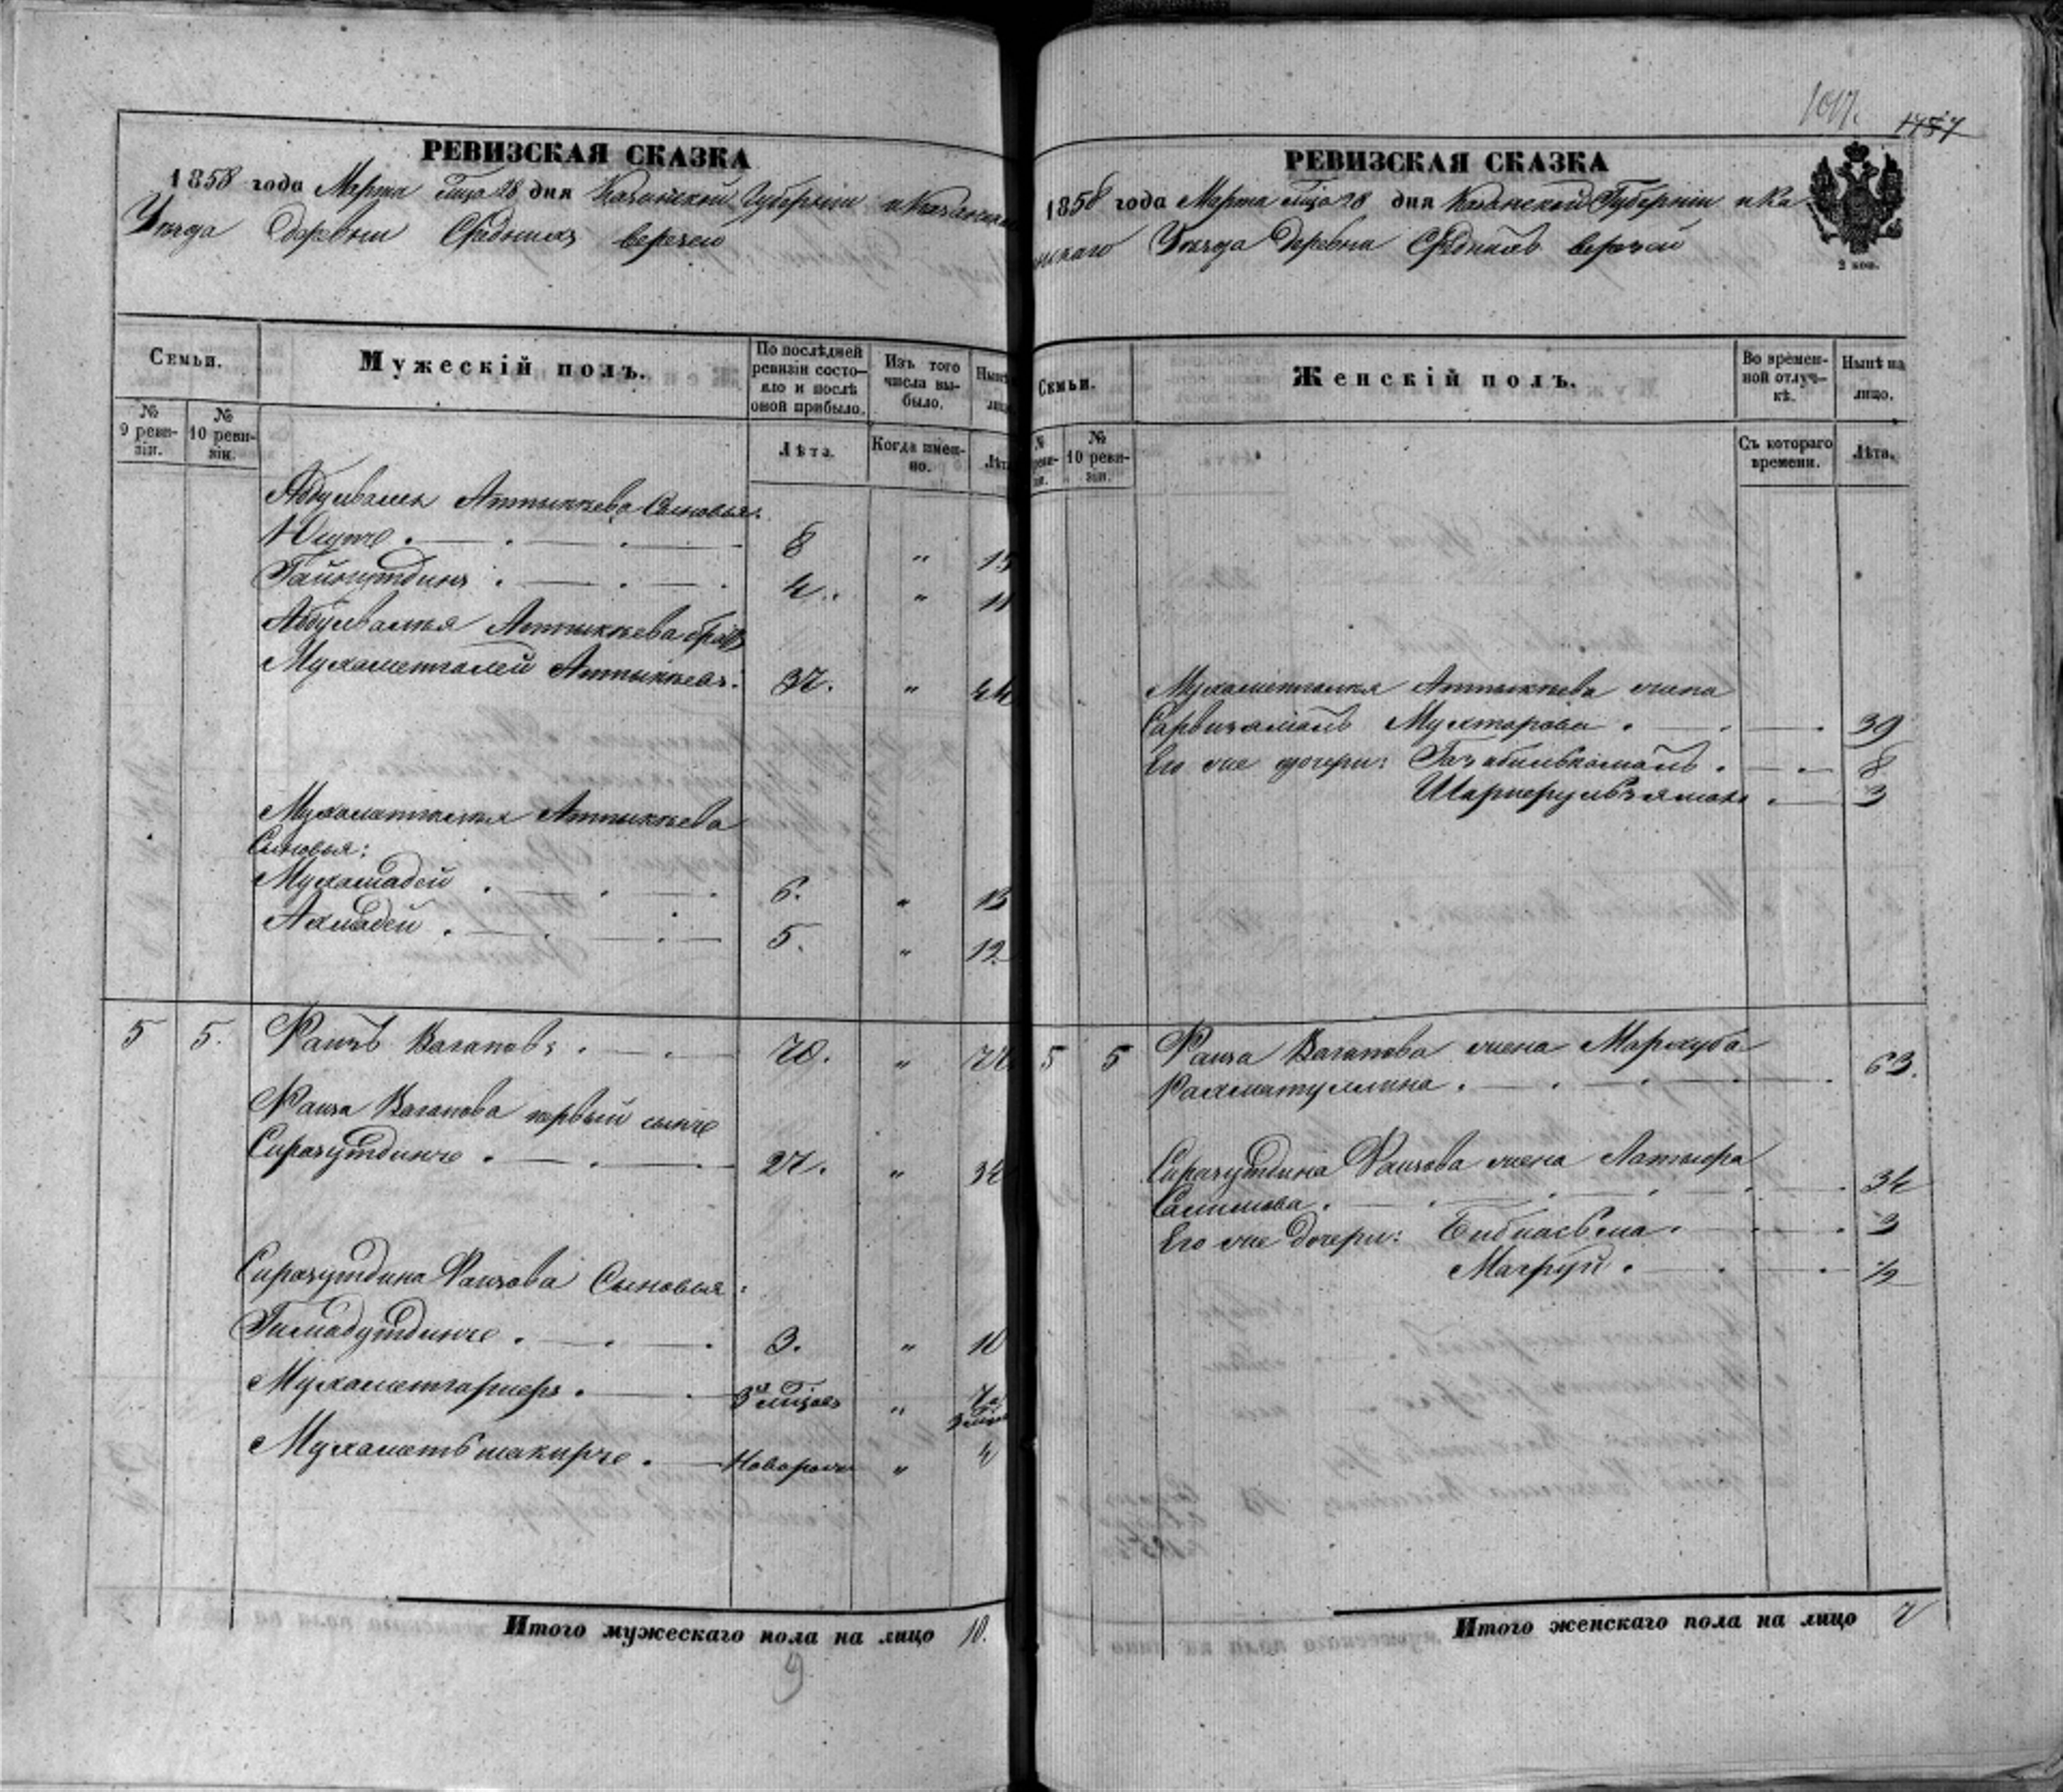 РЕВИЗСКАЯ СКАЗКА
1858 года Марта м̃ца 28 дня Казанской Губерніи и Казанска
Уѣзда деревни Среднихъ верезей
Семьи.
№ 9 реви-зіи.
№ 10 реви-зіи.
Мужескій полъ.
По послѣдней ревизіи состо-яло и послѣ оной прибыло.
Изъ того числа вы-было.
Нынѣ
Лѣта.
Когда имен-но.
Лѣта
Абдулвалея Аптыкѣева Сыновья:
Юсупъ 8 " 15
Гайнутдинъ 4. " 11
Абдулвалея Аптыкѣева братъ
Мухаметгалей Аптыкѣевъ: 37. " 44
Мухаметгалея Аптыкѣева
Сыновья:
Мухамадей 6. " 13
Ахмадей 5. " 12
5 5. Фаизъ Вагаповъ 70. " 77
Фаиза Вагапова первый сынъ
Сиразутдинъ 27. " 34
Сиразутдина Фаизова Сыновья:
Гимадутдинъ 3. " 10
Мухаметгариеръ 3х м̃цовъ " 7 3 м̃цов
Мухаметьшакиръ Новорож " 4
Итого мужескаго пола на лицо 10.
9
1017.
1757
РЕВИЗСКАЯ СКАЗКА
1858 года Марта м̃ца 28 дня Казанской Губерніи и Ка
занскаго Уѣзда деревни Среднихъ верезей
2 коп.
Семьи.
№ реви-зіи.
№ 10 реви-зіи.
Женскій полъ.
Во времен-ной отлуч-кѣ.
Нынѣ на лицо.
Съ котораго времени.
Лѣта.
Мухаметгалея Аптыкѣева жена
Сарвизямаль Мухтарова 39
Его же дочери: Газабилькамаль 8
Шарперульзямал 3
5 5 Фаиза Вагапова жена Мархуба
Рахматуллина 63.
Сиразутдина Фаизова жена Латифа
Салимова 34
Его же дочери: Бибиасьма 3
Магруй ½
Итого женскаго пола на лицо 7